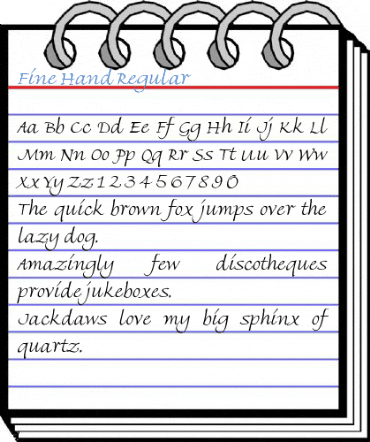 Fine Hand Regular
Aa Bb Cc Dd Ee Ff Gg Hh Ii Jj Kk Ll
Mm Nn Oo Pp Qq Rr Ss Tt uu Vv Ww
Xx Yy Zz 1 2 3 4 5 6 7 8 9 0
The quick brown fox jumps over the
lazy dog.
Amazingly few discotheques
provide jukeboxes.
Jackdaws love my big sphinx of
quartz.